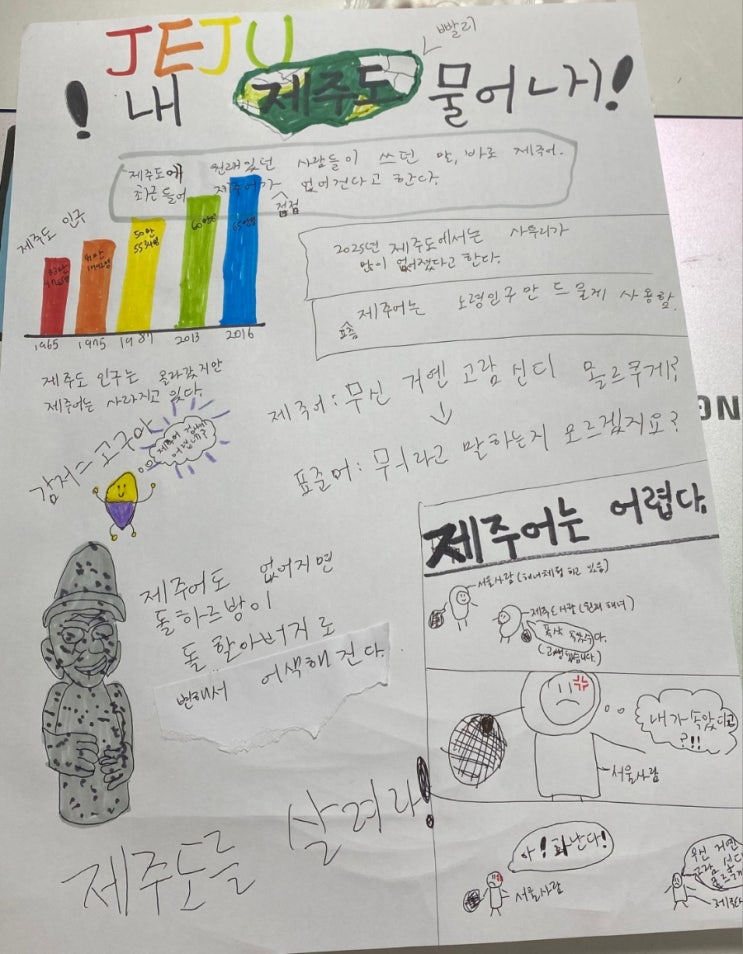 JEJU
빨리
! 내 제주도 물어내!
제주도에 원래있던 사람들이 쓰던 말, 바로 제주어.
최근들어 제주어가 점점 없어진다고 한다.
제주도 인구
60만
1965 1975 1987 2013 2016
2025년 제주도에서는 사투리가
많이 없어졌다고 한다.
제주어는 노령인구만 드물게 사용함.
요즘
제주도 인구는 올라갔지만
제주어는 사라지고 있다.
제주어: 무신 거엔 고람 신디 몰르쿠게?
↓
표준어: 뭐라고 말하는지 모르겠지요?
감저=고구마
제주어도 없어지면
돌하르방이
돌 할아버지로
변해서 어색해진다.
제주도를 살려라!
제주어는 어렵다.
서울사람(해녀체험 하고 있음)
제주도사람(원래 해녀)
폭삭 속았수다.
(고생했습니다.)
내가 속았다고
?!!
서울사람
아! 화난다!
서울사람
무신 거엔
고람 신디